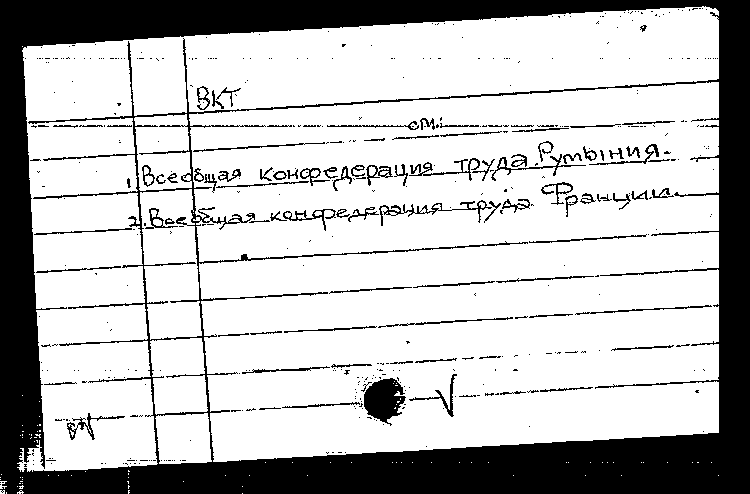 ВКТ
см.:
1. Всеобщая конфедерация труда. Румыния.
2. Всеобщая конфедерация труда Франции.